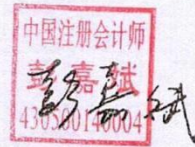 中国注册会计师
彭嘉斌
430300140004
彭嘉斌